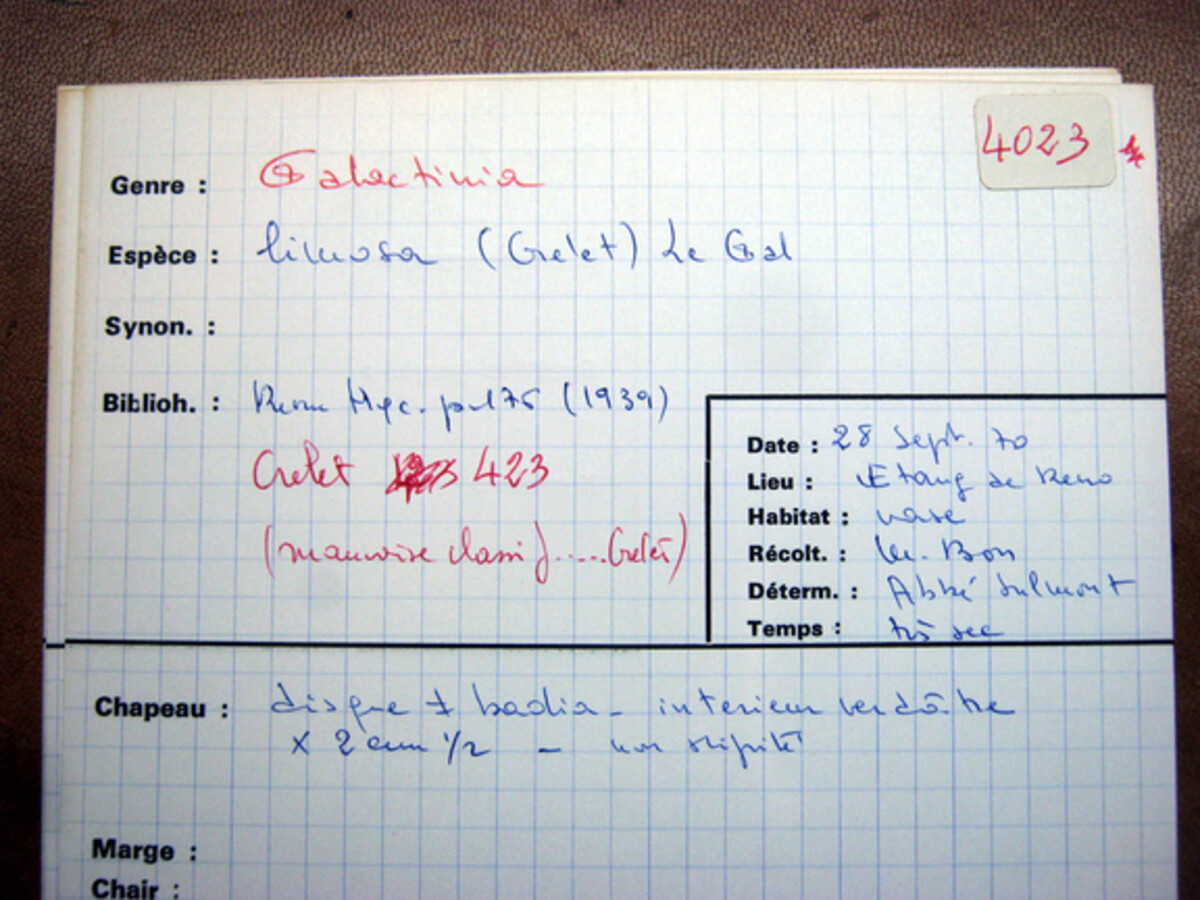 4023
Genre : Galactinia
Espèce : limosa (Grelet) Le Gal
Synon. :
Biblioh. : Revue Myc. (1939)
Grelet 423
(mauvaise classif.....Grelet)
Date : 28 Sept. 70
Lieu : Etang de Reno
Habitat : vase
Récolt. : M. Bon
Déterm. : Abbé Sulmont
Temps : très sec
Chapeau : disque ± badia - interieur verdâtre
x 2 cm 1/2 - non stipité
Marge :
Chair :